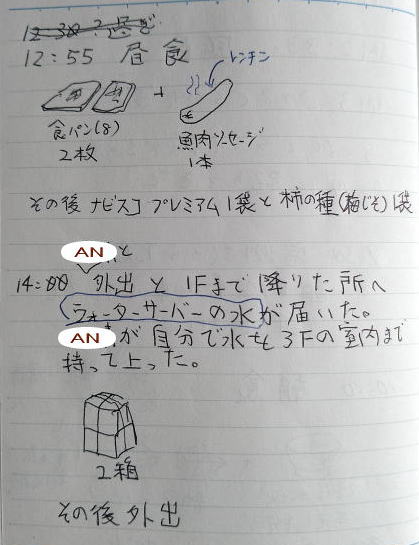 12:55 昼食
レンチン
+
食パン(8)
2枚
魚肉ソーセージ
1本
その後 ナビスコ プレミアム1袋と 柿の種(梅じそ)1袋
AN と
14:00 外出と 1Fまで降りた所へ
ウォーターサーバーの水が届いた。
AN が自分で水を3Fの室内まで
持って上った。
2箱
その後外出